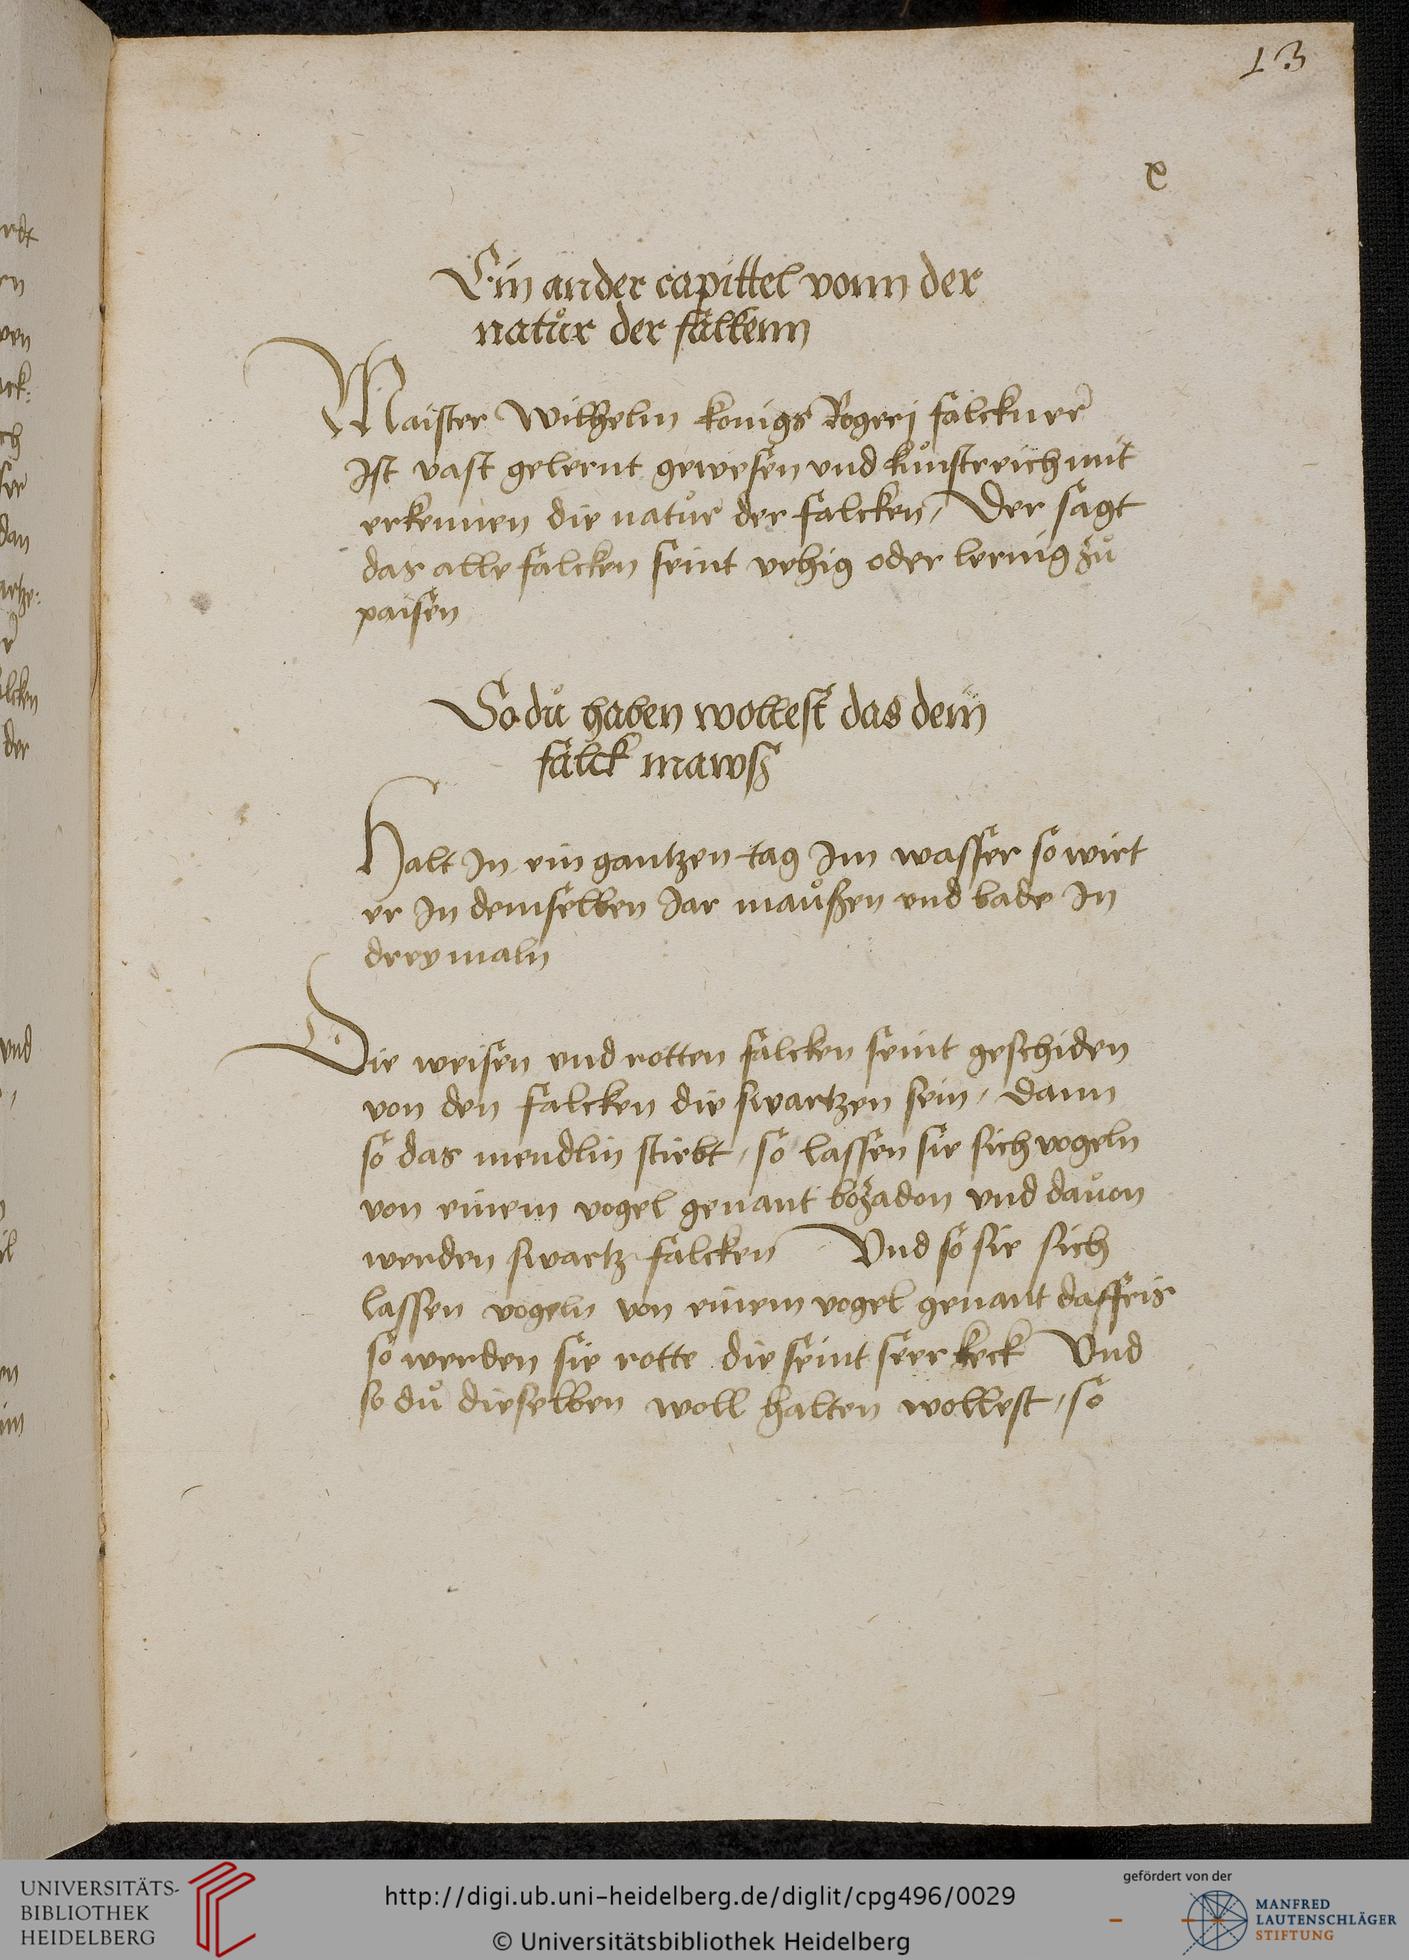 13
x
Ein ander capittel vonn der
natůr der falkenn
Maister Wilhelm konigs Rogerj falckner
Ist vast gelernt gewesen vnd kůnstreich mit
erkennen die natůr der falcken / Der sagt
das alle falcken seint vehig oder lernig zů
paisen
So dů haben wollest das dein
falck mawß
Halt In ein gantzen tag Im wasser so wirt
er In demselben Jar maůßen vnd bade In
dreymaln
Die weisen vnd rotten falcken seint geschiden
von den falcken die swartzen sein / dann
so das mendlin stirbt / so lassen sie sich vogeln
von einem vogel genant bozadon vnd dauon
werden swartz falcken Vnd so sie sich
lassen vogeln von einem vogel genant daffris
so werden sie rotte die seint seer keck Vnd
so dů dieselben woll halten wollest / so
UNIVERSITÄTS-
BIBLIOTHEK
HEIDELBERG
http://digi.ub.uni-heidelberg.de/diglit/cpg496/0029
© Universitätsbibliothek Heidelberg
gefördert von der
MANFRED
LAUTENSCHLÄGER
STIFTUNG